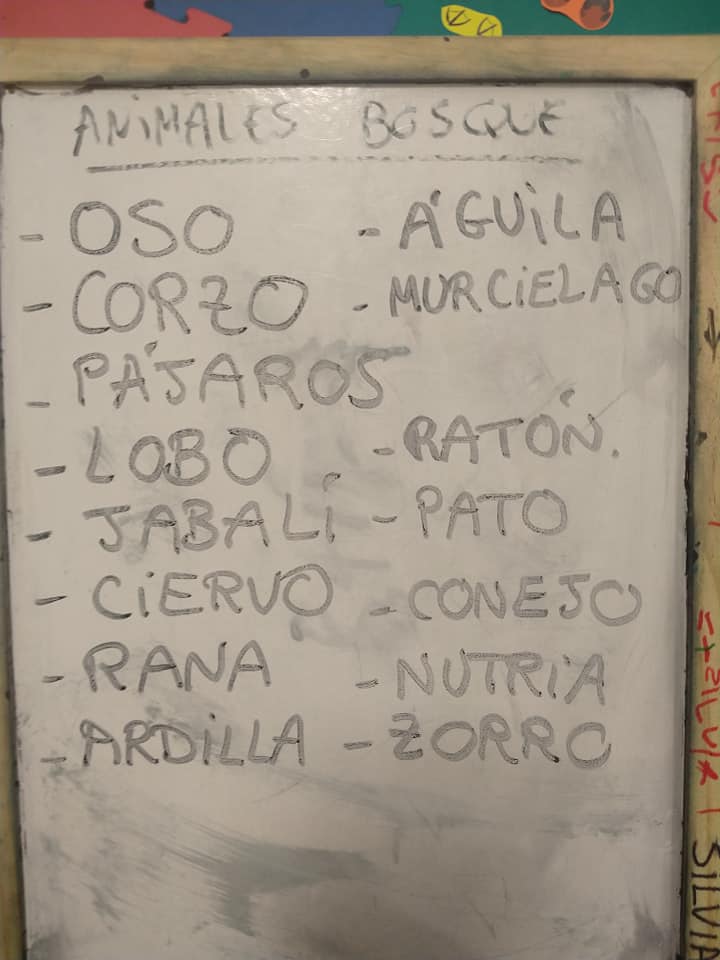 ANiMALES BOSQUE
- OSO
- CORZO
- PÁJAROS
- LOBO
- JABALÍ
- CiERVO
- RANA
- ARDiLLA
- ÁGUiLA
- MURCiELAGO
- RATÓN.
- PATO
- CONEJO
- NUTRiA
- ZORRO
SILVIA